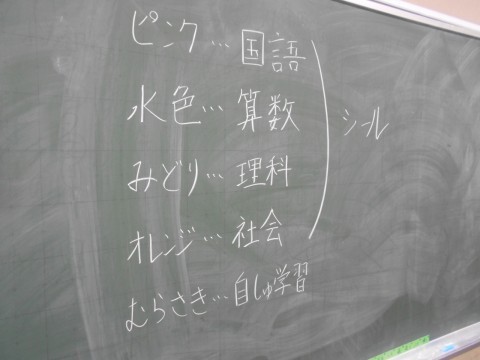 ピンク…国語
水色…算数
みどり…理科
オレンジ…社会
むらさき…自しゅ学習
シール